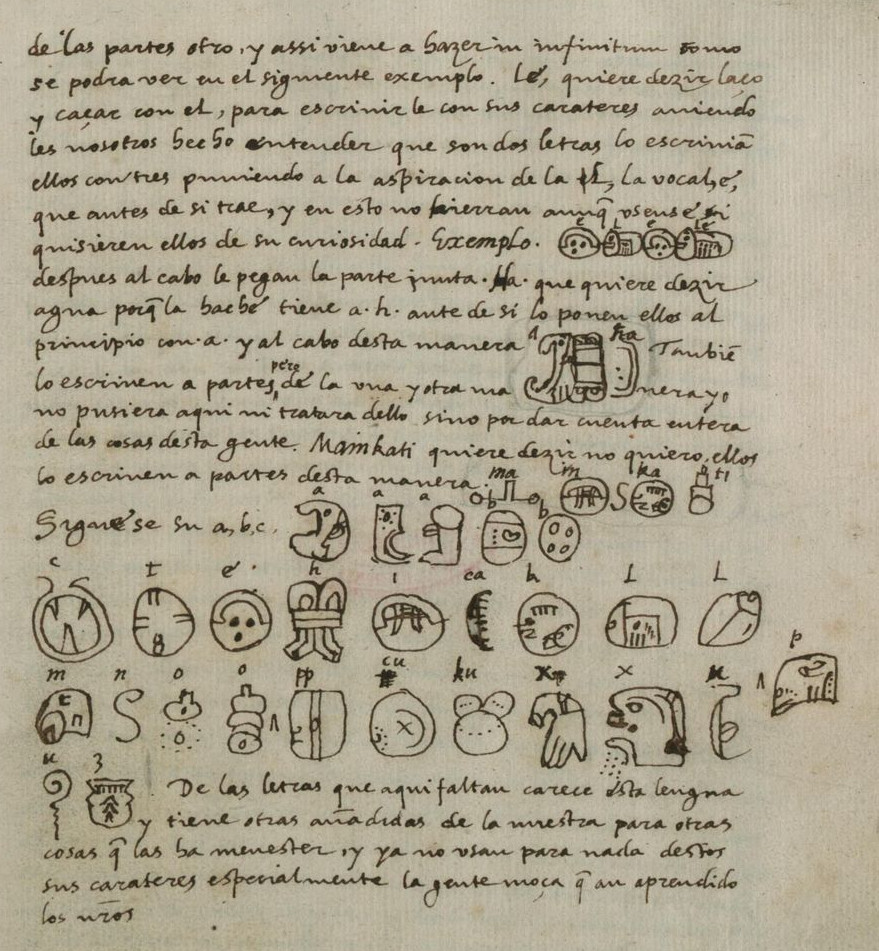 de las partes otro, y assi viene a hazer in infinitum como
se podra ver en el siguiente exemplo. Lé, quiere dezir laço
y caçar con el, para escrivir le con sus carateres aviendo
les nosotros hecho entender que son dos letras lo escriviā
ellos con tres puniendo a la aspiracion de la L, la vocal, é,
que antes de si trae, y en esto no hierran aunq̄ usense, si
quisieren ellos de su curiosidad. Exemplo. e L e Lé
despues al cabo le pegan la parte junta. Ha. que quiere dezir
agua porq̄ la hache tiene a. h. ante de si lo ponen ellos al
principio con. a. y al cabo desta manera a ha Tambiē
lo escriven a partes, pero de la una y otra ma nera yo
no pusiera aqui ni tratara dello sino por dar cuenta entera
de las cosas desta gente. Mainkati quiere dezir no quiero, ellos
lo escriven a partes desta manera. ma in ka ti
Siguese su a, b, c. a a a b b
c t é h i ca k L L
m n o o pp cu ku x x u p
u z De las letras que aqui faltan carece esta lengua
y tiene otras añadidas de la nuestra para otras
cosas q̄ las ha menester, y ya no usan para nada destos
sus carateres especialmente la gente moça q̄ an aprendido
los nr̄os